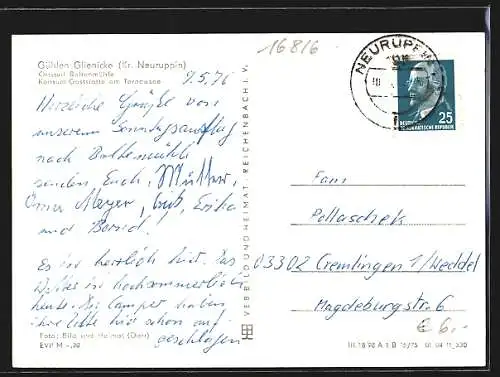 Gühlen Glienicke (Kr. Neuruppin)
Ortsteil Boltenmühle
Konsum-Gaststätte am Tornowsee
9.5.76
Herzliche Grüße von
unserem Sonntagsausflug
nach Boltenmühle
senden Euch, Mutter,
Oma Meyer, Erika
und Bernd!
Es ist herrlich hier. Das
Wetter ist hochsommerlich
heute. Die Camper haben
ihre Zelte hier schon auf-
geschlagen
Foto: Bild und Heimat (Darr)
EVP M -,20
VEB BILD UND HEIMAT · REICHENBACH i. V.
16816
NEURUPPIN
25
DEUTSCHE
DEMOKRATISCHE REPUBLIK
Fam
Pollaschek
D3302 Cremlingen 1/Weddel
Magdeburgstr. 6
€ 6.-
III/18/98 A 1 B 15/75 01 04 11 330